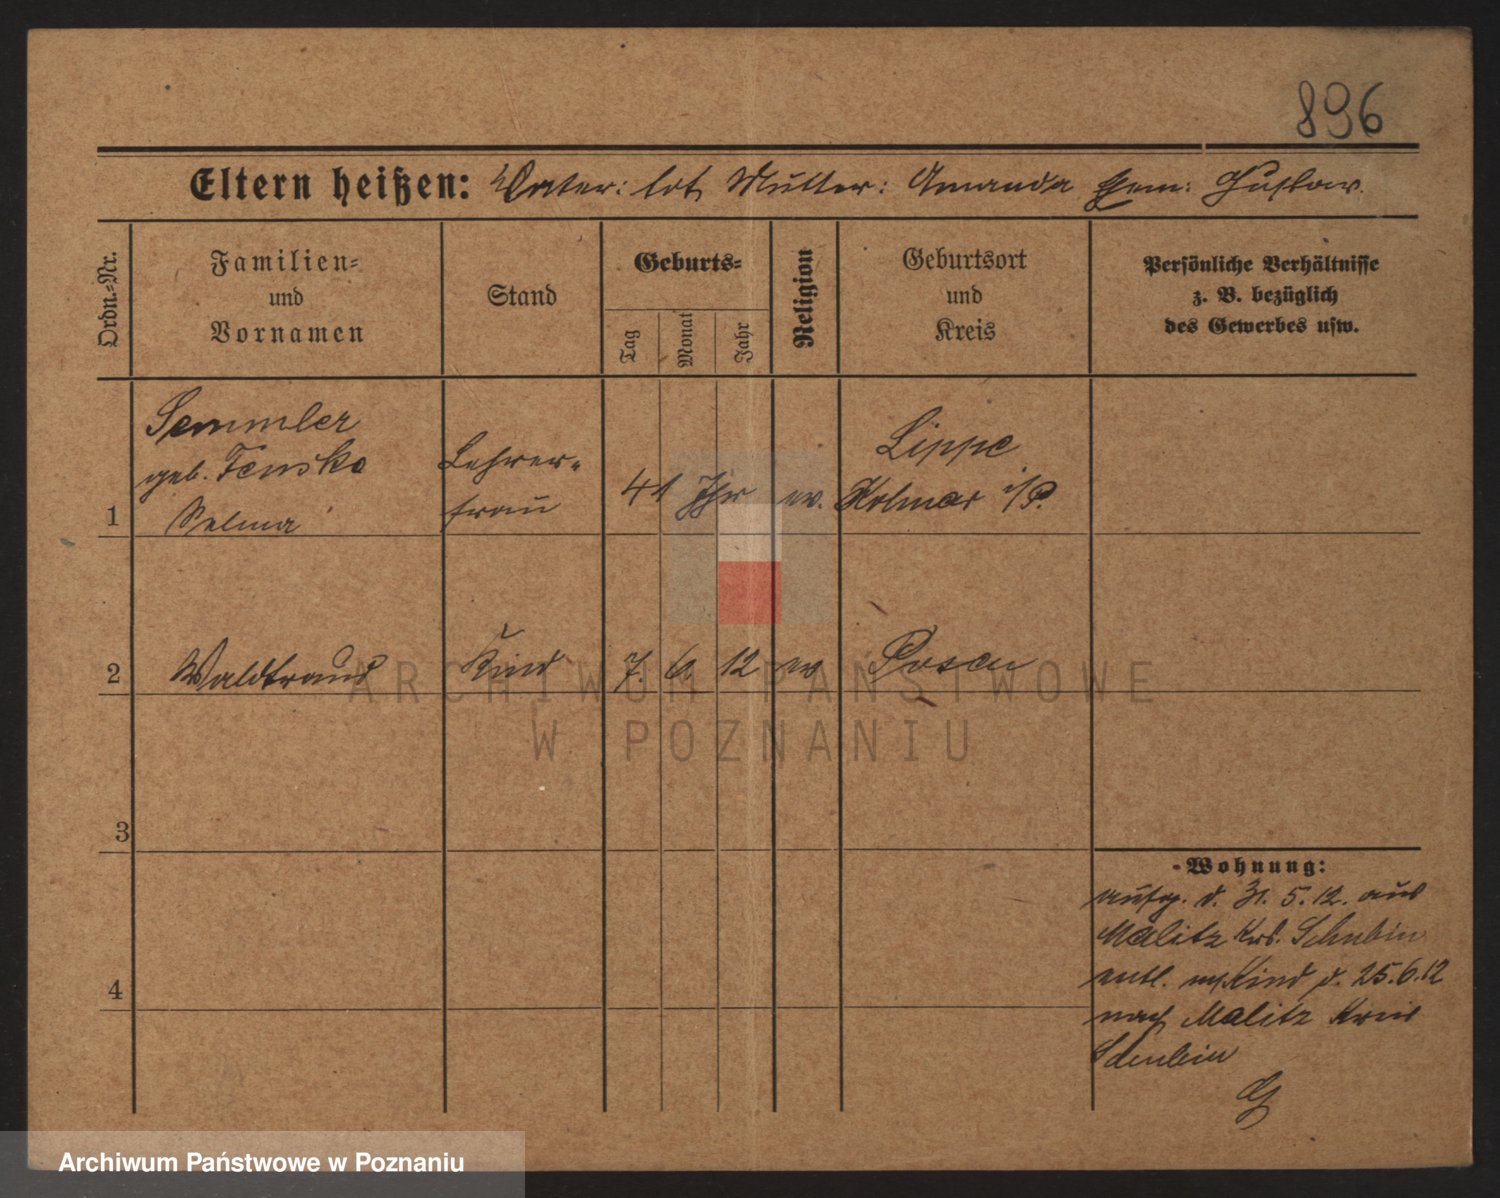 896
Eltern heißen: Vater: tot Mutter: Amanda
Ordn.-Nr.
Familien-
und
Vornamen
Stand
Geburts-
Tag
Monat
Jahr
Religion
Geburtsort
und
Kreis
Persönliche Verhältnisse
z. B. bezüglich
des Gewerbes usw.
1
Semmler
geb. Tenske
Selma
Lehrer-
frau
41 Jhr
ev.
Lippe
Kolmar i/P.
2
Waldtraud
Kind
7. 6. 12
ev
Posen
3
4
Wohnung:
aufg. d. 31. 5. 12. aus
Malitz Krs. Schubin
entl. m/Kind d. 25.6.12
nach Malitz Kreis
Schubin
ARCHIWUM PAŃSTWOWE
W POZNANIU
Archiwum Państwowe w Poznaniu